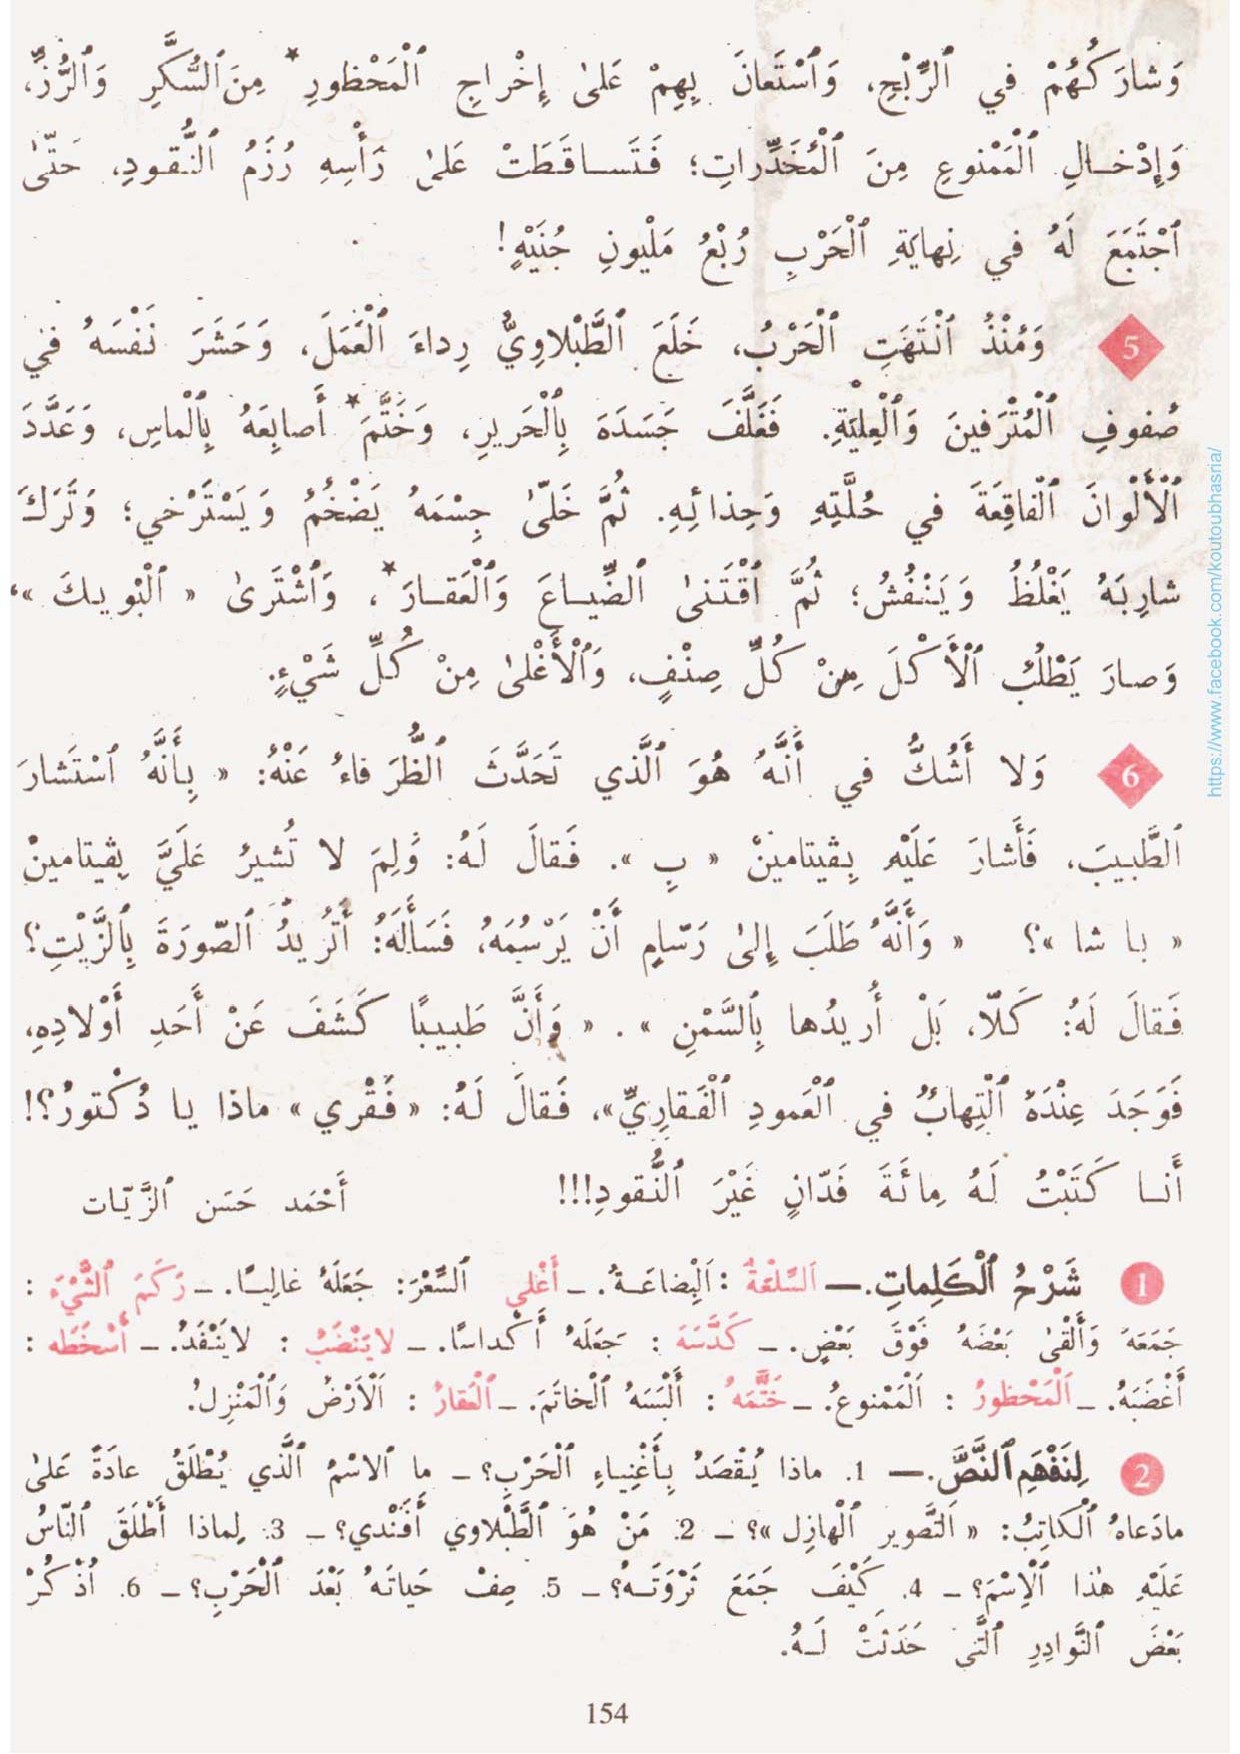 وَشارَكَهُمْ في ٱلرِّبْحِ، وَٱسْتَعانَ بِهِمْ عَلىٰ إِخْراجِ ٱلْمَحْظورِ* مِنَ ٱلسُّكَّرِ وَٱلرُّزِّ،
وَإِدْخـالِ ٱلْمَمْنوعِ مِنَ ٱلْمُخَدِّراتِ؛ فَتَساقَطَتْ عَلىٰ رَأْسِهِ رُزَمُ ٱلنُّقودِ، حَتّىٰ
ٱجْتَمَعَ لَهُ في نِهايَةِ ٱلْحَرْبِ رُبْعُ مَلْيونِ جُنَيْهٍ!
5 وَمُنْذُ ٱنْتَهَتِ ٱلْحَرْبُ، خَلَعَ ٱلطَّبْلاوِيُّ رِداءَ ٱلْعَمَلَ، وَحَشَرَ نَفْسَهُ في
صُفوفِ ٱلْمُتْرَفينَ وَٱلْعِلِيَّةِ. فَغَلَّفَ جَسَدَهَ بِٱلْحَريرِ، وَخَتَّمَ* أَصابِعَهُ بِٱلْماسِ، وَعَدَّدَ
ٱلْأَلْوانَ ٱلْفاقِعَةَ في حُلَّتِهِ وَحِذائِهِ. ثُمَّ خَلّىٰ جِسْمَهُ يَضْخُمُ وَيَسْتَرْخي؛ وَتَرَكَ
شارِبَهُ يَغْلُظُ وَيَنْفُشُ؛ ثُمَّ ٱقْتَنىٰ ٱلضِّيـاعَ وَٱلْعَقـارَ*، وَٱشْتَرىٰ « ٱلْبْويكَ »،
وَصارَ يَطْلُبُ ٱلْأَكْلَ مِنْ كُلِّ صِنْفٍ، وَٱلْأَغْلىٰ مِنْ كُلِّ شَيْءٍ.
6 وَلا أَشُكُّ في أَنَّهُ هُوَ ٱلَّذي تَحَدَّثَ ٱلظُّرَفاءُ عَنْهُ: « بِأَنَّهُ ٱسْتَشارَ
ٱلطَّبيبَ، فَأَشارَ عَلَيْهِ بِڤيتامينْ « بِ ». فَقالَ لَهُ: وَلِمَ لا تُشيرُ عَلَيَّ بِڤيتامينْ
« با شا »؟ « وَأَنَّهُ طَلَبَ إِلىٰ رَسّامٍ أَنْ يَرْسُمَهُ، فَسَأَلَهُ: أَتُريدُ ٱلصّورَةَ بِٱلزَّيْتِ؟
فَقالَ لَهُ: كَلّا، بَلْ أُريدُها بِٱلسَّمْنِ ». « وَأَنَّ طَبيبًا كَشَفَ عَنْ أَحَدِ أَوْلادِهِ،
فَوَجَدَ عِنْدَهُ ٱلْتِهابٌ في ٱلْعَمودِ ٱلْفَقارِيِّ»، فَقالَ لَهُ: « فَقْري » ماذا يا دُكْتورُ؟!
أَنـا كَتَبْتُ لَهُ مِائَةَ فَدّانٍ غَيْرَ ٱلنُّقودِ!!! أَحْمَد حَسَن ٱلزَّيّات
1 شَرْحُ ٱلْكَلِماتِ.— اَلسِّلْعَةُ : اَلْبِضاعَـةُ. ـ أَغْلى ٱلسِّعْرَ: جَعَلَهُ غالِيـًا. ـ رَكَمَ ٱلشَّيْءَ :
جَمَعَهُ وَأَلْقىٰ بَعْضَهُ فَوْقَ بَعْضٍ. ـ كَدَّسَهَ : جَعَلَهُ أَكْداسًا. ـ لايَنْضَبُ : لايَنْفَدُ. ـ أَسْخَطَه :
أَغْضَبَهُ. ـ اَلْمَحْظورُ : اَلْمَمْنوعُ. ـ خَتَّمَهُ : أَلْبَسَهُ ٱلْخاتَمَ. ـ اَلْعَقارُ : اَلْأَرْضُ وَٱلْمَنْزِلُ.
2 لِنَفْهَمِ ٱلنَّصَّ.— 1. ماذا يُقْصَدُ بِأَغْنِياءِ ٱلْحَرْبِ؟ ـ ما ٱلاسْمُ ٱلَّذي يُطْلَقُ عادَةً عَلىٰ
مادَعاهُ ٱلْكاتِبُ: « اَلتَّصوير ٱلْهازِل »؟ ـ 2. مَنْ هُوَ ٱلطَّبْلاوي أَفَنْدي؟ ـ 3. لِماذا أَطْلَقَ ٱلنّاسُ
عَلَيْهِ هٰذا ٱلْاِسْمَ؟ ـ 4. كَيْفَ جَمَعَ ثَرْوَتَـهُ؟ ـ 5. صِفْ حَياتَهُ بَعْدَ ٱلْحَرْبِ؟ ـ 6. اُذْكُرْ
بَعْضَ ٱلنَّوادِرِ ٱلَّتي حَدَثَتْ لَـهُ.
154
https://www.facebook.com/koutoubhasria/